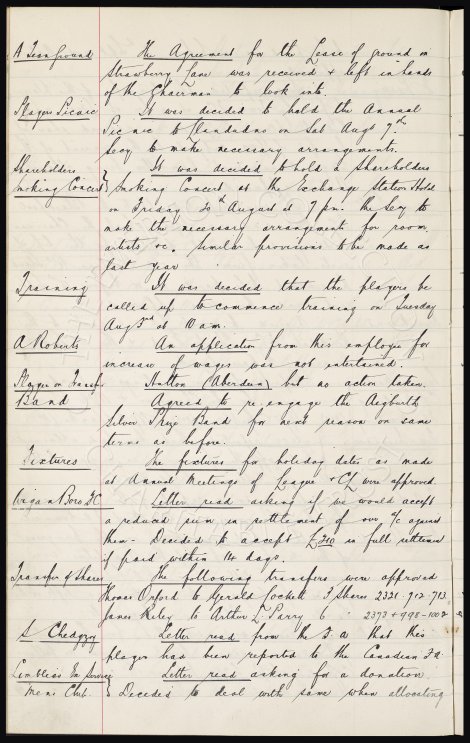 A Team Ground The Agreement for the Lease of ground in
Strawberry Lane was received & left in hands
of the Chairman to look into.
Players Picnic It was decided to hold the Annual
Picnic to Llandudno on Sat Augt 7th.
Secy to make necessary arrangements.
Shareholders It was decided to hold a Shareholders
Smoking Concert Smoking Concert at the Exchange Station Hotel
on Friday 20th August at 7 pm. the Secy to
make the necessary arrangements for room,
artists &c. similar provisions to be made as
last year
Training It was decided that the players be
called up to commence training on Tuesday
Aug 3rd at 10 am.
A Roberts An application from this employee for
increase of wages was not entertained.
Player on Transfer Hutton (Aberdeen) but no action taken.
Band Agreed to re-engage the Aigburth
Silver Prize Band for next season on same
terms as before.
Fixtures The fixtures for holiday dates as made
at Annual Meetings of League & CL were approved.
Wigan Boro FC Letter read asking if we would accept
a reduced sum in settlement of our a/c against
them - Decided to accept £210 in full settlement
if paid within 14 days.
Transfer of Shares The following transfers were approved
Thomas Orford to Gerald 3 Shares 2321. 712-713
James Riley to Arthur L Parry 6 " 2373 & 998-1002
S Chedgzoy Letter read from the F.A that this
player had been reported to the Canadian F.A.
Limbless Ex Service Letter read asking for a donation
Mens Club. Decided to deal with same when allocating